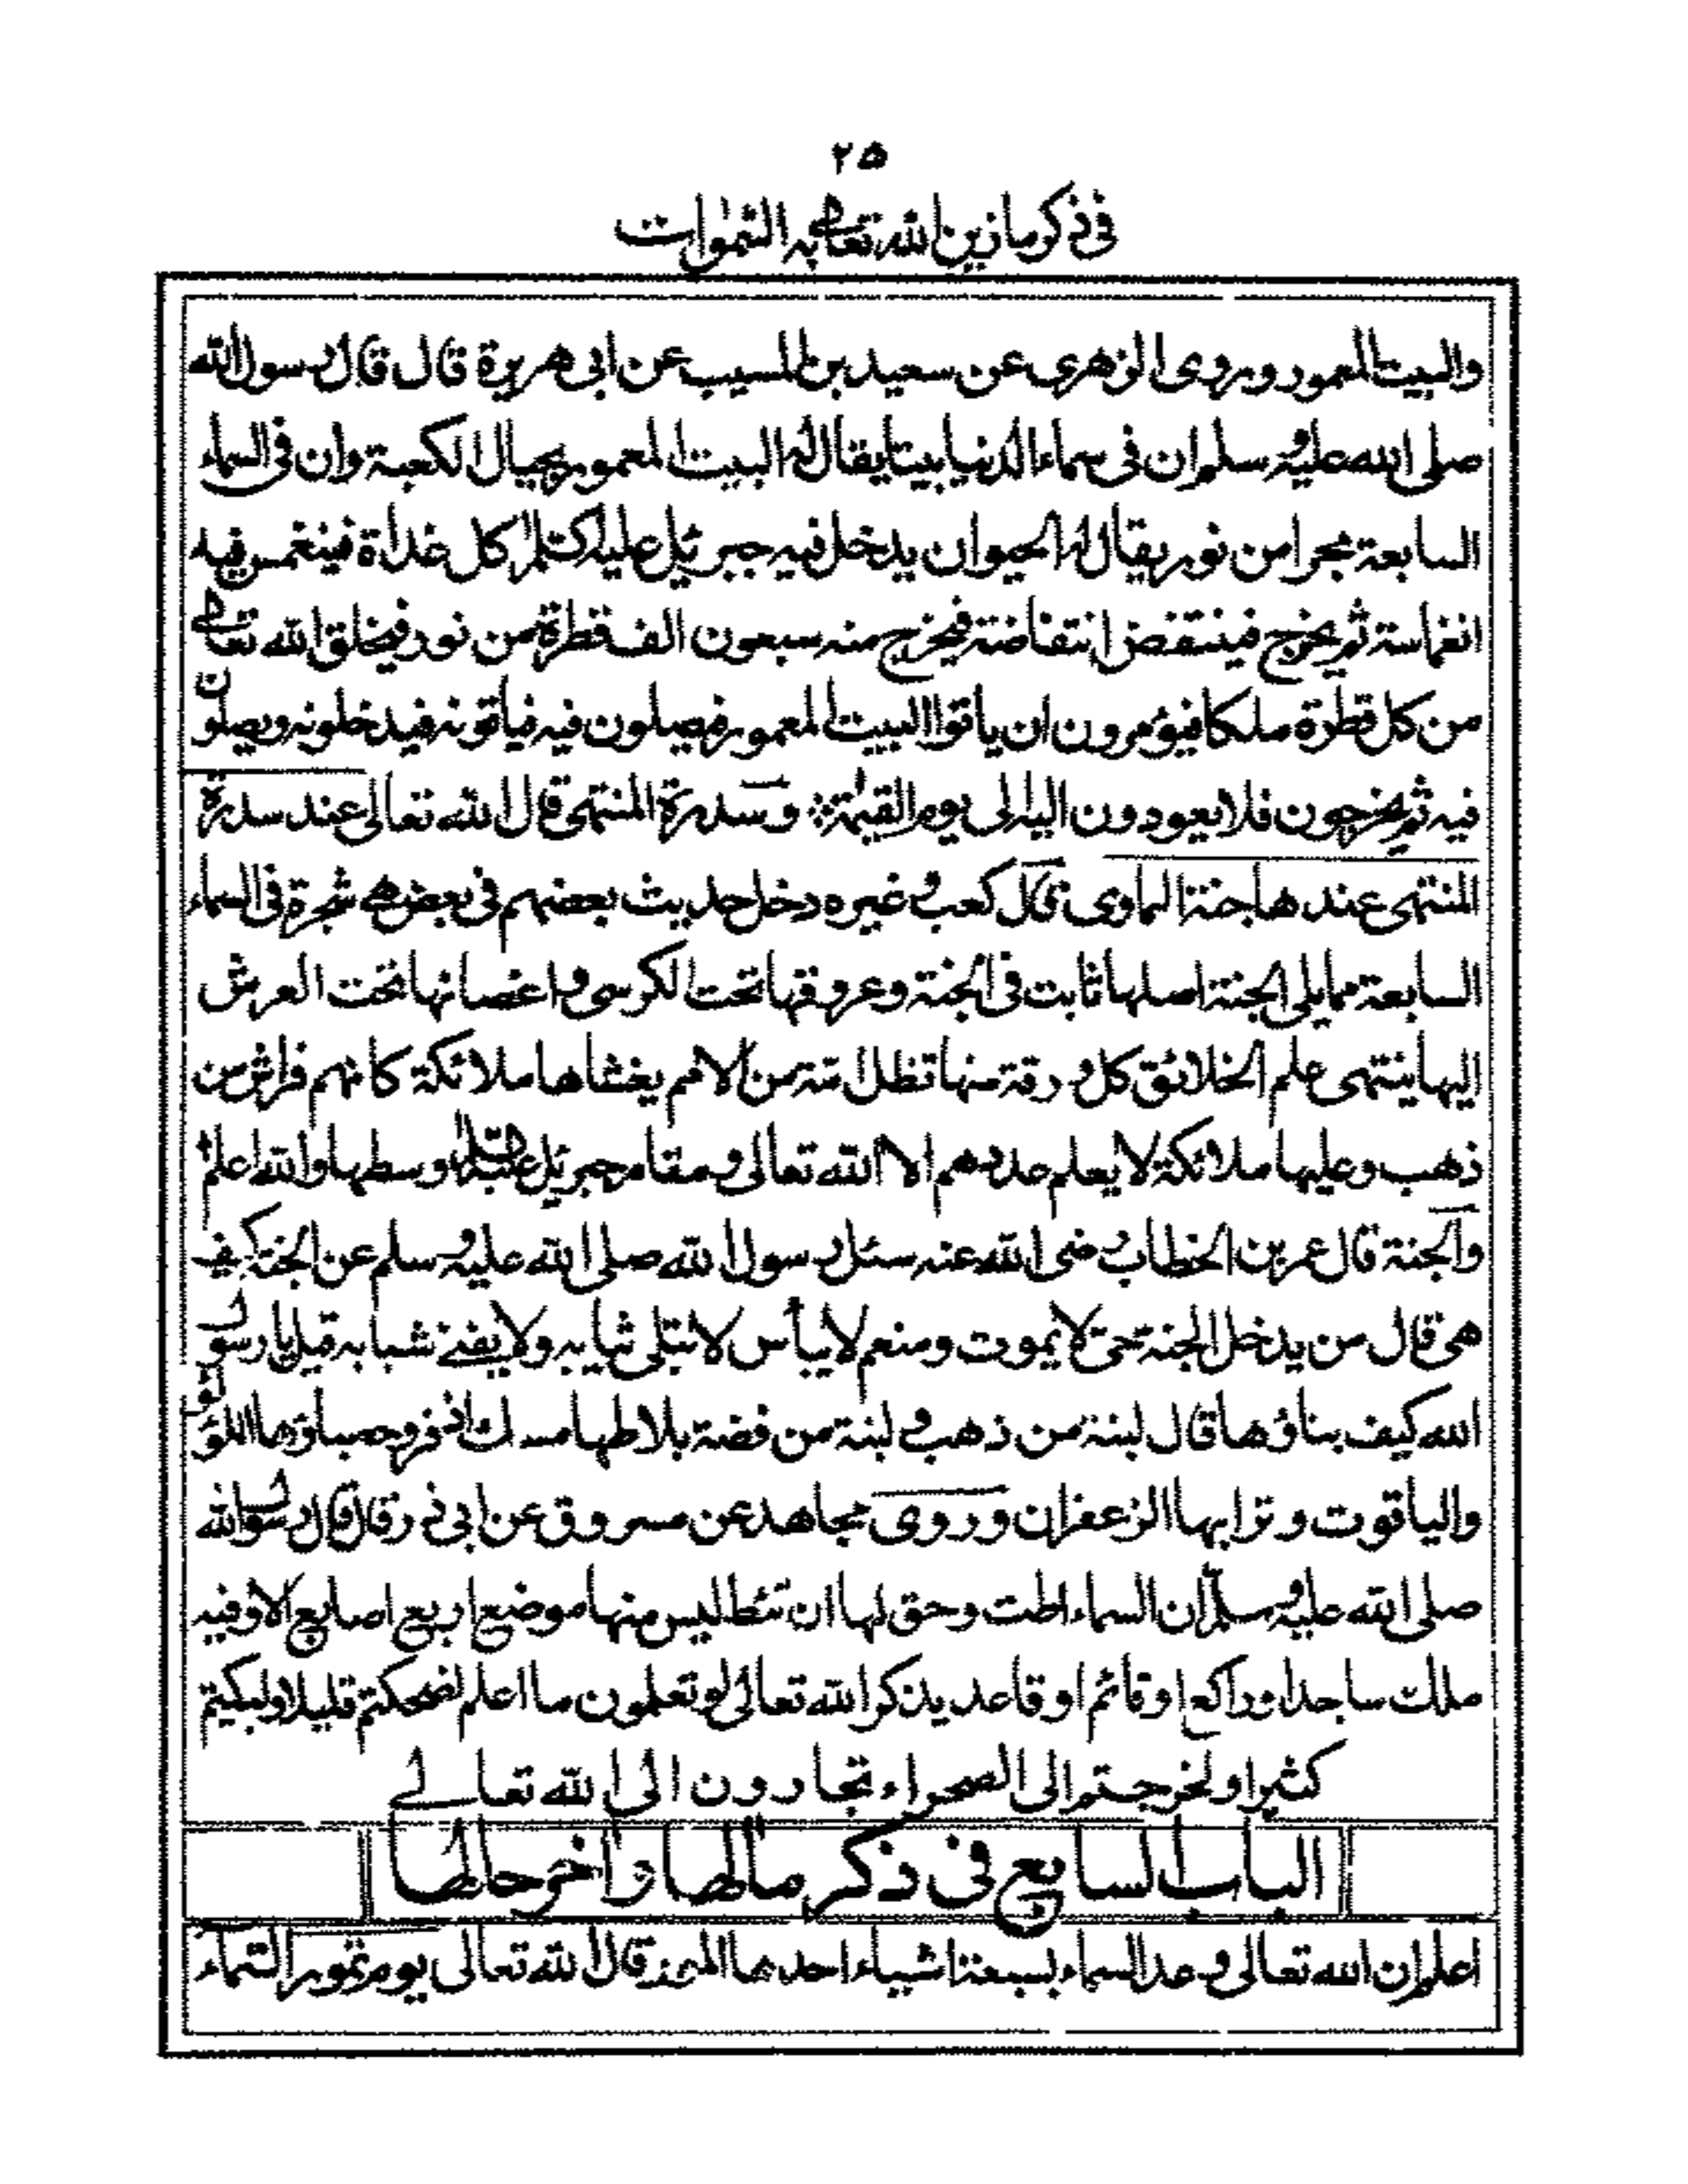 ٢٥
فى ذكر ما زين الله تعالى به السموات
والبيت المعمور وروى الزهرى عن سعيد بن المسيب عن ابى هريرة قال قال رسول الله
صلى الله عليه وسلم ان فى سماء الدنيا بيتا يقال له البيت المعمور بحيال الكعبة وان فى السماء
السابعة بحرا من نور يقال له الحيوان يدخل فيه جبرئيل عليه السلم كل غداة فينغمس فيه
انغماسة ثم يخرج فينتفض انتفاضة فيخرج منه سبعون الف قطرة من نور فيخلق الله تعالى
من كل قطرة ملكا فيؤمرون ان ياتوا البيت المعمور فيصلون فيه فياتونه فيدخلونه ويصلون
فيه ثم يخرجون فلا يعودون اليه الى يوم القيمة وسدرة المنتهى قال الله تعالى عند سدرة
المنتهى عندها جنة الماوى قال كعب وغيره دخل حديث بعضهم فى بعض هى شجرة فى السماء
السابعة مما يلى الجنة اصلها ثابت فى الجنة وعروقها تحت الكرسى واغصانها تحت العرش
اليها ينتهى علم الخلائق كل ورقة منها تظل امة من الامم يغشاها ملائكة كانهم فراش من
ذهب وعليها ملائكة لا يعلم عددهم الا الله تعالى ومقام جبرئيل عليه السلم وسطها والله اعلم
والجنة قال عمر بن الخطاب رضى الله عنه سئل رسول الله صلى الله عليه وسلم عن الجنة كيف
هى قال من يدخل الجنة حتى لا يموت ومنعم لا يبأس لا تبلى ثيابه ولا يفنى شبابه قيل يا رسول
الله كيف بناؤها قال لبنة من ذهب ولبنة من فضة بلاطها مسك اذفر وحصباؤها اللؤلؤ
والياقوت وترابها الزعفران وروى مجاهد عن مسروق عن ابى ذر قال قال رسول الله
صلى الله عليه وسلم ان السماء اطت وحق لها ان تئط ليس منها موضع اربع اصابع الا وفيه
ملك ساجد او راكع او قائم او قاعد يذكر الله تعالى لو تعلمون ما اعلم لضحكتم قليلا ولبكيتم
كثيرا ولخرجتم الى الصحراء تجارون الى الله تعالى
الباب السابع فى ذكر مالها واخر حالها
اعلم ان الله تعالى وعد السماء بسبعة اشياء احدها قال الله تعالى يوم تمور السماء